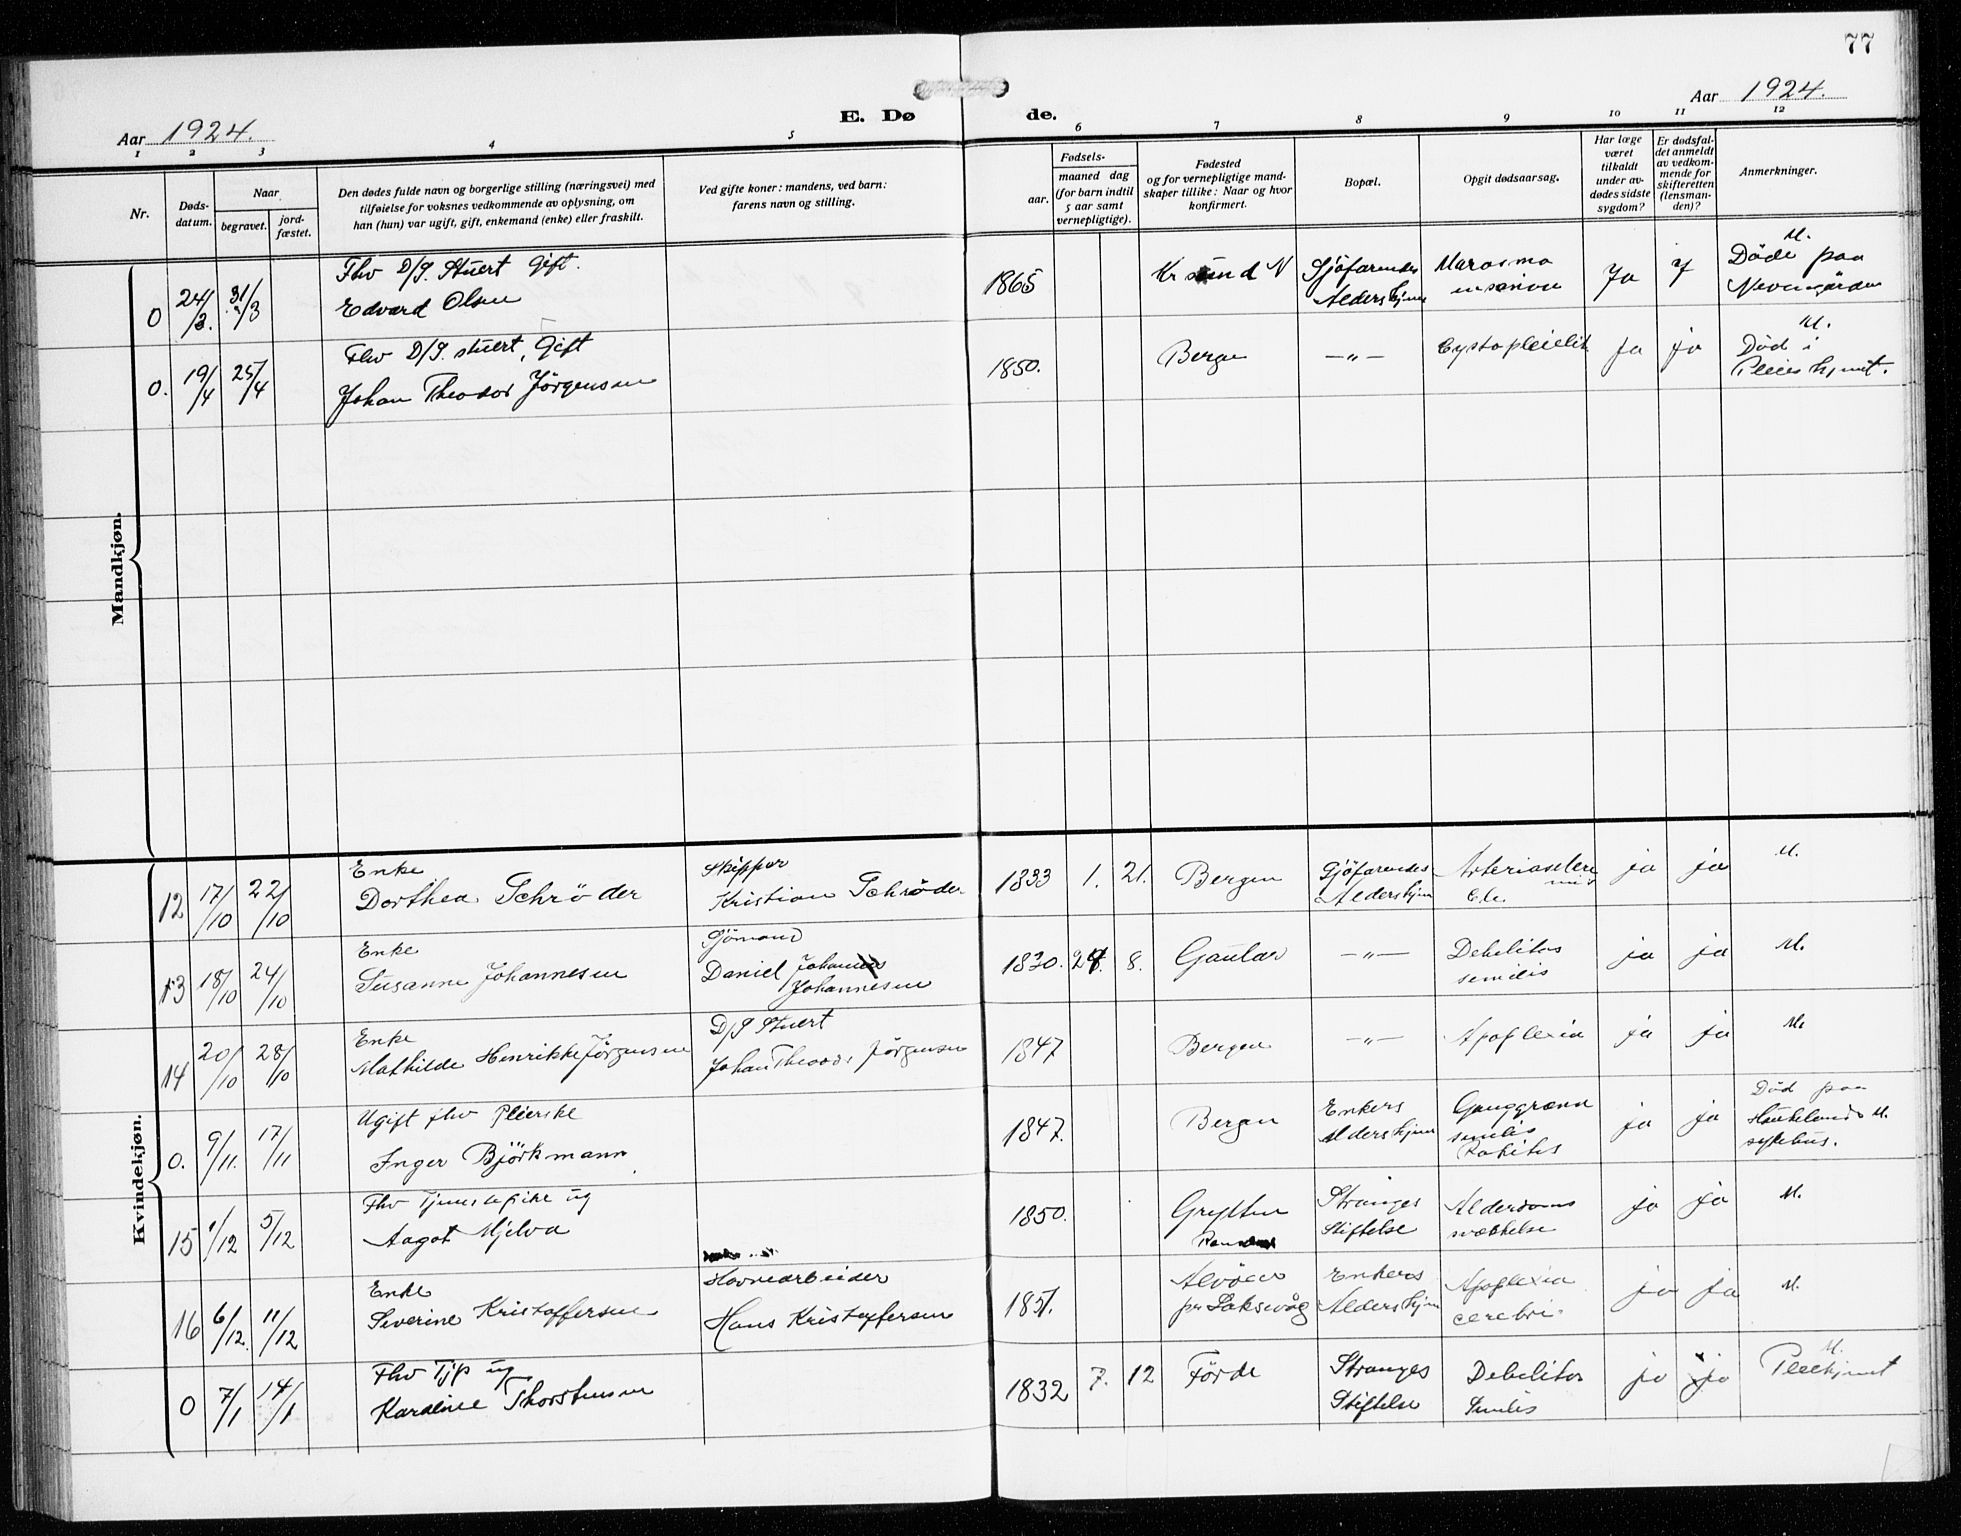 77
Aar 1924.
E. Dø de.
Aar 1924.
1 2 3 4 5 6 7 8 9 10 11 12
Nr.
Døds-
datum.
Naar
begravet.
jord-
fæstet.
Den dødes fulde navn og borgerlige stilling (næringsvei) med
tilføielse for voksnes vedkommende av oplysning, om
han (hun) var ugift, gift, enkemand (enke) eller fraskilt.
Ved gifte koner: mandens, ved barn:
farens navn og stilling.
Fødsels-
aar.
maaned dag
(for barn indtil
5 aar samt
vernepligtige).
Fødested
og for vernepligtige mand-
skaper tillike: Naar og hvor
konfirmert.
Bopæl.
Opgit dødsaarsag.
Har læge
været
tilkaldt
under av-
dødes sidste
sygdom?
Er dødsfal-
det anmeldt
av vedkom-
mende for
skifteretten
(lensman-
den)?
Anmerkninger.
Mandkjøn.
0 24/3. 31/3
Fhv D/S. Stuert Gift.
Edvard Olsen
1865
Kr sund N
Sjöfarendes
Aldershjem
Ja
M.
Døde paa
0. 19/4 25/4
Fhv D/S. stuert, Gift
Johan Theodor Jörgensen
1850.
Bergen
—„—
Ja ja
M.
Död i
Pleieshjemet.
Kvindekjøn.
12 17/10 22/10
Enke
Dorthea Schrøder
Skipper
Kristian Schrøder
1833 1. 21.
Bergen
Sjöfarendes
Aldershjem
ja ja
M.
13 18/10 24/10
Enke
Susanne Johannesen
Sjömand
Daniel
Johannesen
1830. 8.
Gaular
—„—
Debilitas
senilis
ja ja
M.
14 20/10 28/10
Enke
Mathilde Henrikke Jörgensen
D/S Stuert
Johan Theodor Jörgensen
1847
Bergen
—„—
Apoplexia
ja ja
M.
0. 9/11. 17/11
Ugift fhv Pleierske
Inger Björkmann
1847.
Bergen
Enkers
Aldershjem
Ganggræna
senilis
ja ja
Död paa
Haukelands M.
sykehus.
15 1/12 5/12
Fhv Tjenestepike ug
Aagot Mjelva
1850.
Grytten
Stranges
Stiftelse
Alderdoms
svækkelse
ja ja
M.
16 6/12. 11/12
Enke
Severine Kristoffersen
Havnearbeider
Hans Kristoffersen
1851.
Alvöen
pr Laksevåg
Enkers
Aldershjem
Apoplexia
cerebri
ja ja
M.
0 7/1 14/1
Fhv Tjp ug
Karoline Thorstensen
1832 7. 12
Förde
Stranges
Stiftelse
Debilitas
Senilis
ja ja
M.
Pleiehjemet